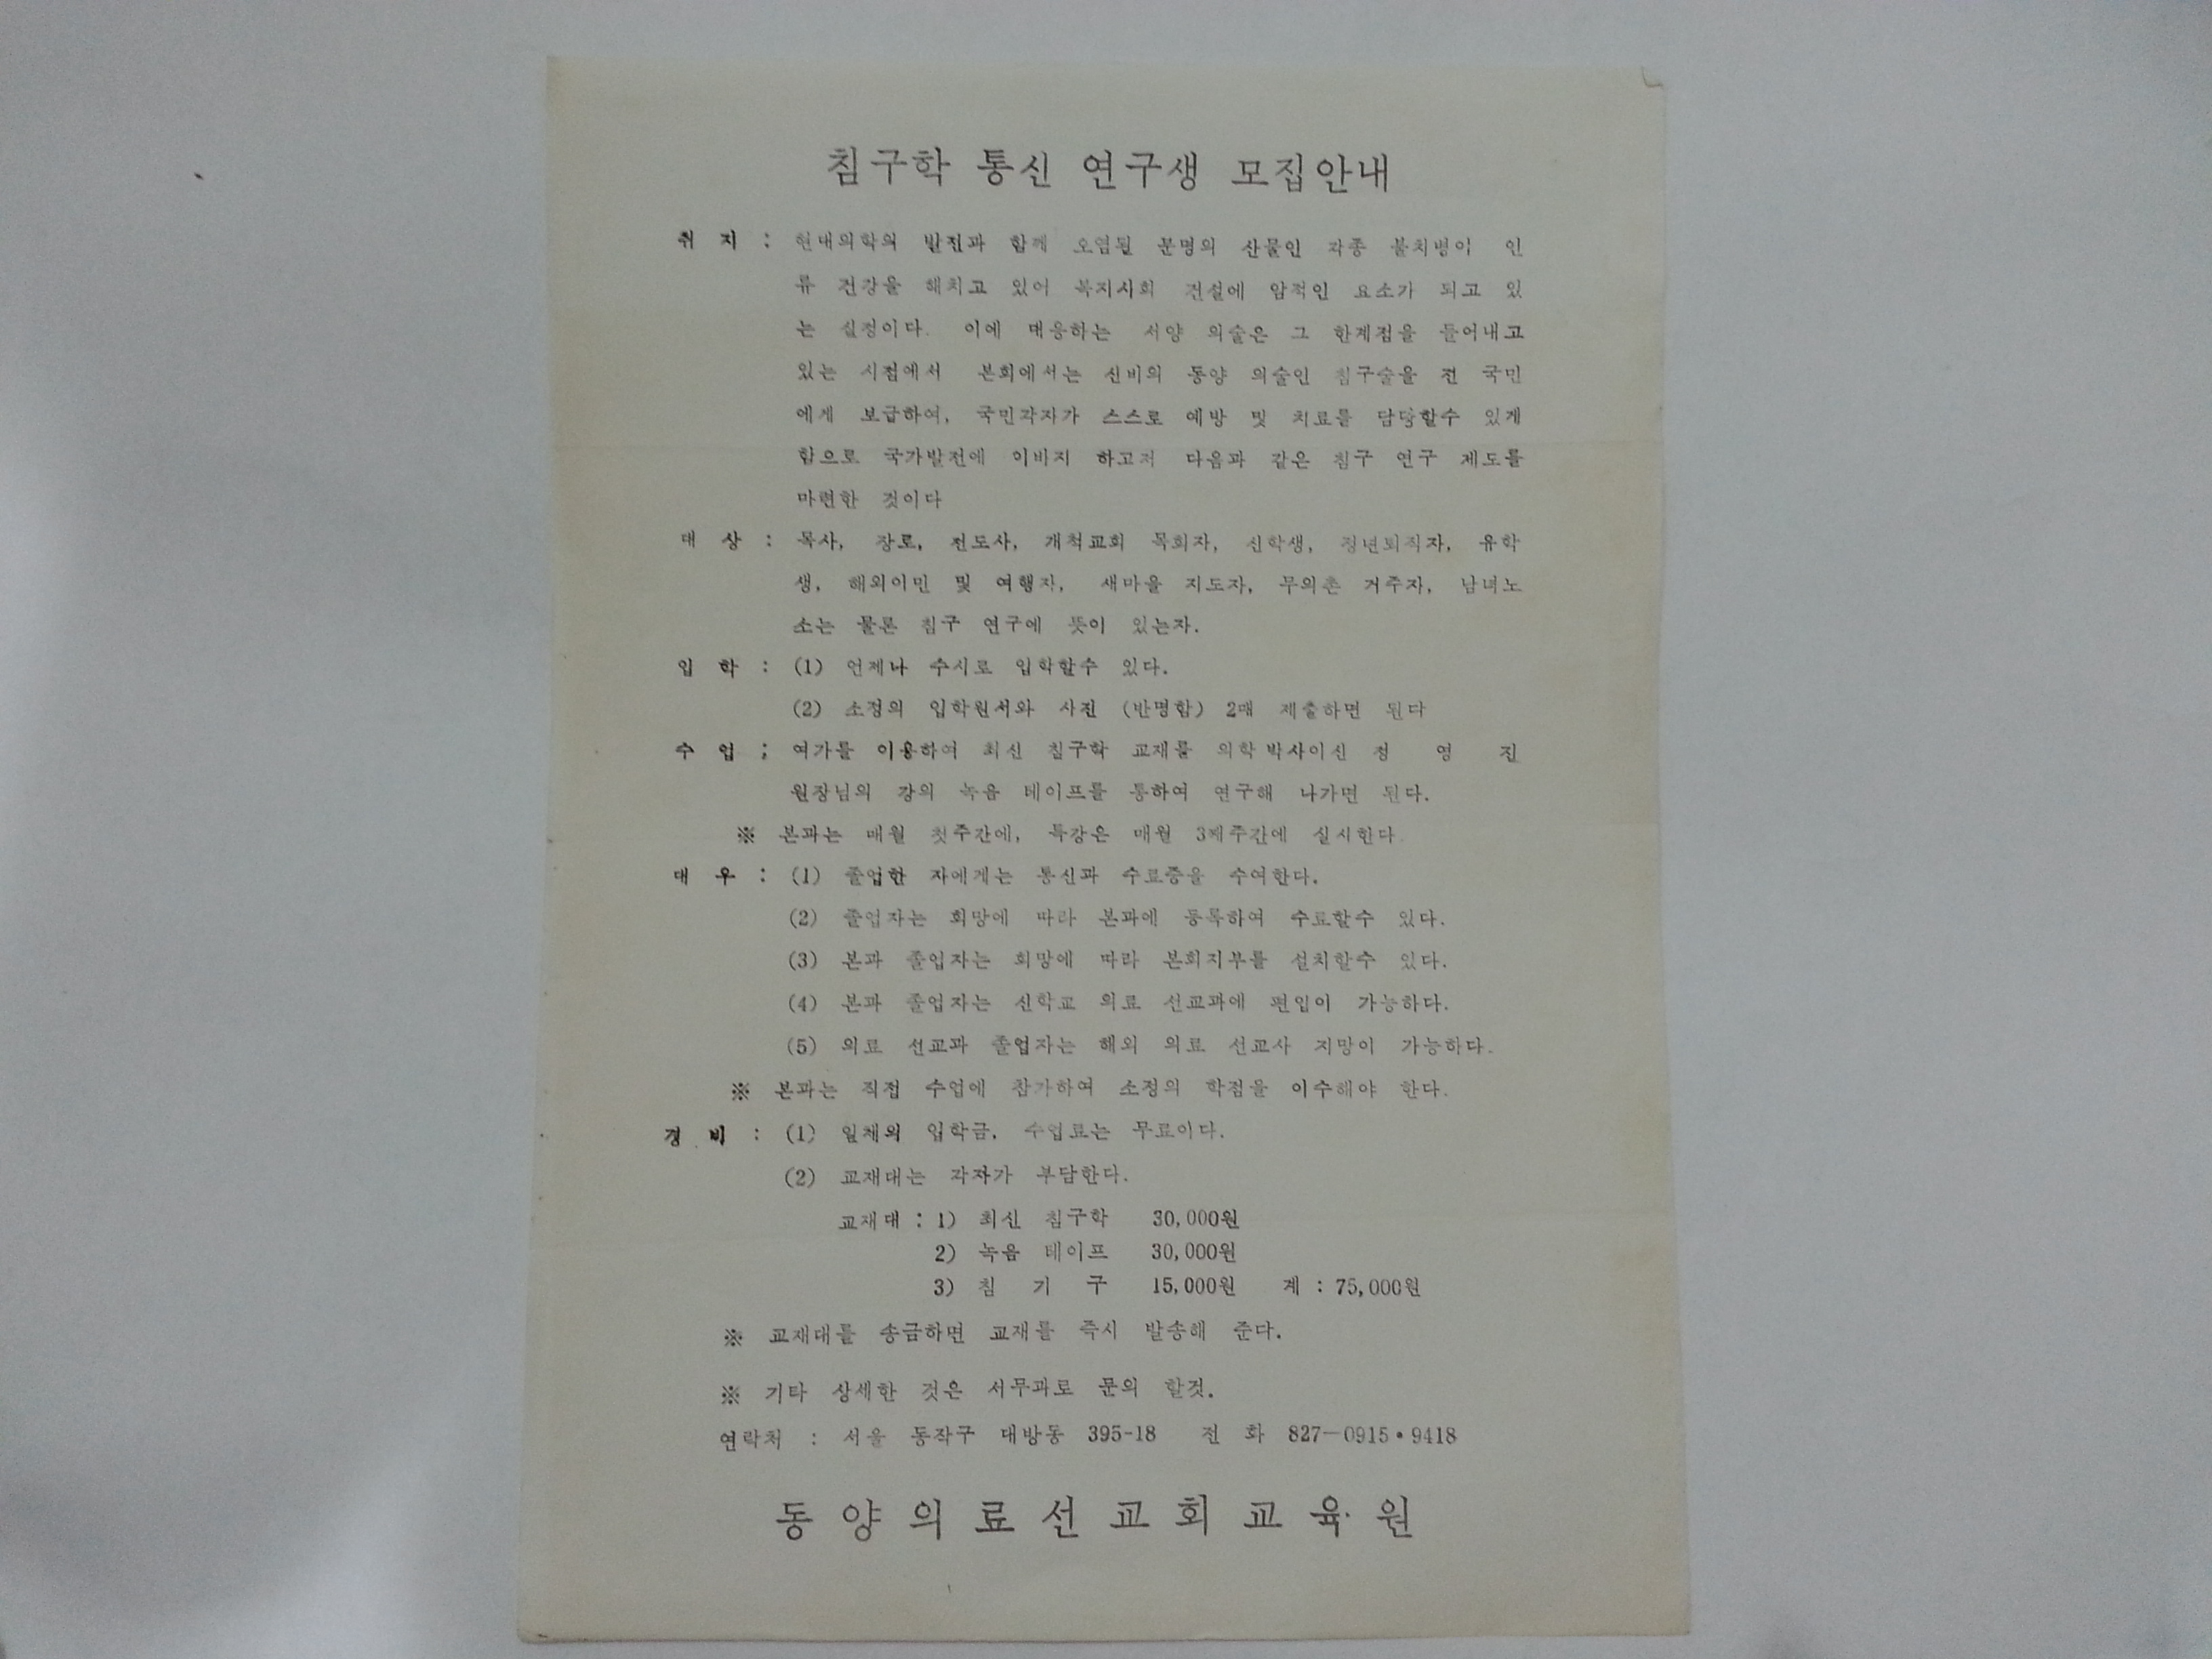 침구학 통신 연구생 모집안내
취 지 : 현대의학의 발전과 함께 오염된 문명의 산물인 각종 불치병이 인
류 건강을 해치고 있어 복지사회 건설에 암적인 요소가 되고 있
는 실정이다. 이에 대응하는 서양 의술은 그 한계점을 들어내고
있는 시점에서 본회에서는 신비의 동양 의술인 침구술을 전 국민
에게 보급하여, 국민각자가 스스로 예방 및 치료를 담당할수 있게
함으로 국가발전에 이바지 하고저 다음과 같은 침구 연구 제도를
마련한 것이다
대 상 : 목사, 장로, 전도사, 개척교회 목회자, 신학생, 정년퇴직자, 유학
생, 해외이민 및 여행자, 새마을 지도자, 무의촌 거주자, 남녀노
소는 물론 침구 연구에 뜻이 있는자.
입 학 : (1) 언제나 수시로 입학할수 있다.
(2) 소정의 입학원서와 사진 (반명함) 2매 제출하면 된다
수 업 ; 여가를 이용하여 최신 침구학 교재를 의학박사이신 정 영 진
원장님의 강의 녹음 테이프를 통하여 연구해 나가면 된다.
※ 본과는 매월 첫주간에, 특강은 매월 3째주간에 실시한다.
대 우 : (1) 졸업한 자에게는 통신과 수료증을 수여한다.
(2) 졸업자는 희망에 따라 본과에 등록하여 수료할수 있다.
(3) 본과 졸업자는 희망에 따라 본회지부를 설치할수 있다.
(4) 본과 졸업자는 신학교 의료 선교과에 편입이 가능하다.
(5) 의료 선교과 졸업자는 해외 의료 선교사 지망이 가능하다.
※ 본과는 직접 수업에 참가하여 소정의 학점을 이수해야 한다.
경 비 : (1) 일체의 입학금, 수업료는 무료이다.
(2) 교재대는 각자가 부담한다.
교재대 : 1) 최신 침구학 30,000원
2) 녹음 테이프 30,000원
3) 침 기 구 15,000원 계 : 75,000원
※ 교재대를 송금하면 교재를 즉시 발송해 준다.
※ 기타 상세한 것은 서무과로 문의 할것.
연락처 : 서울 동작구 대방동 395-18 전 화 827-0915•9418
동양의료선교회교육원